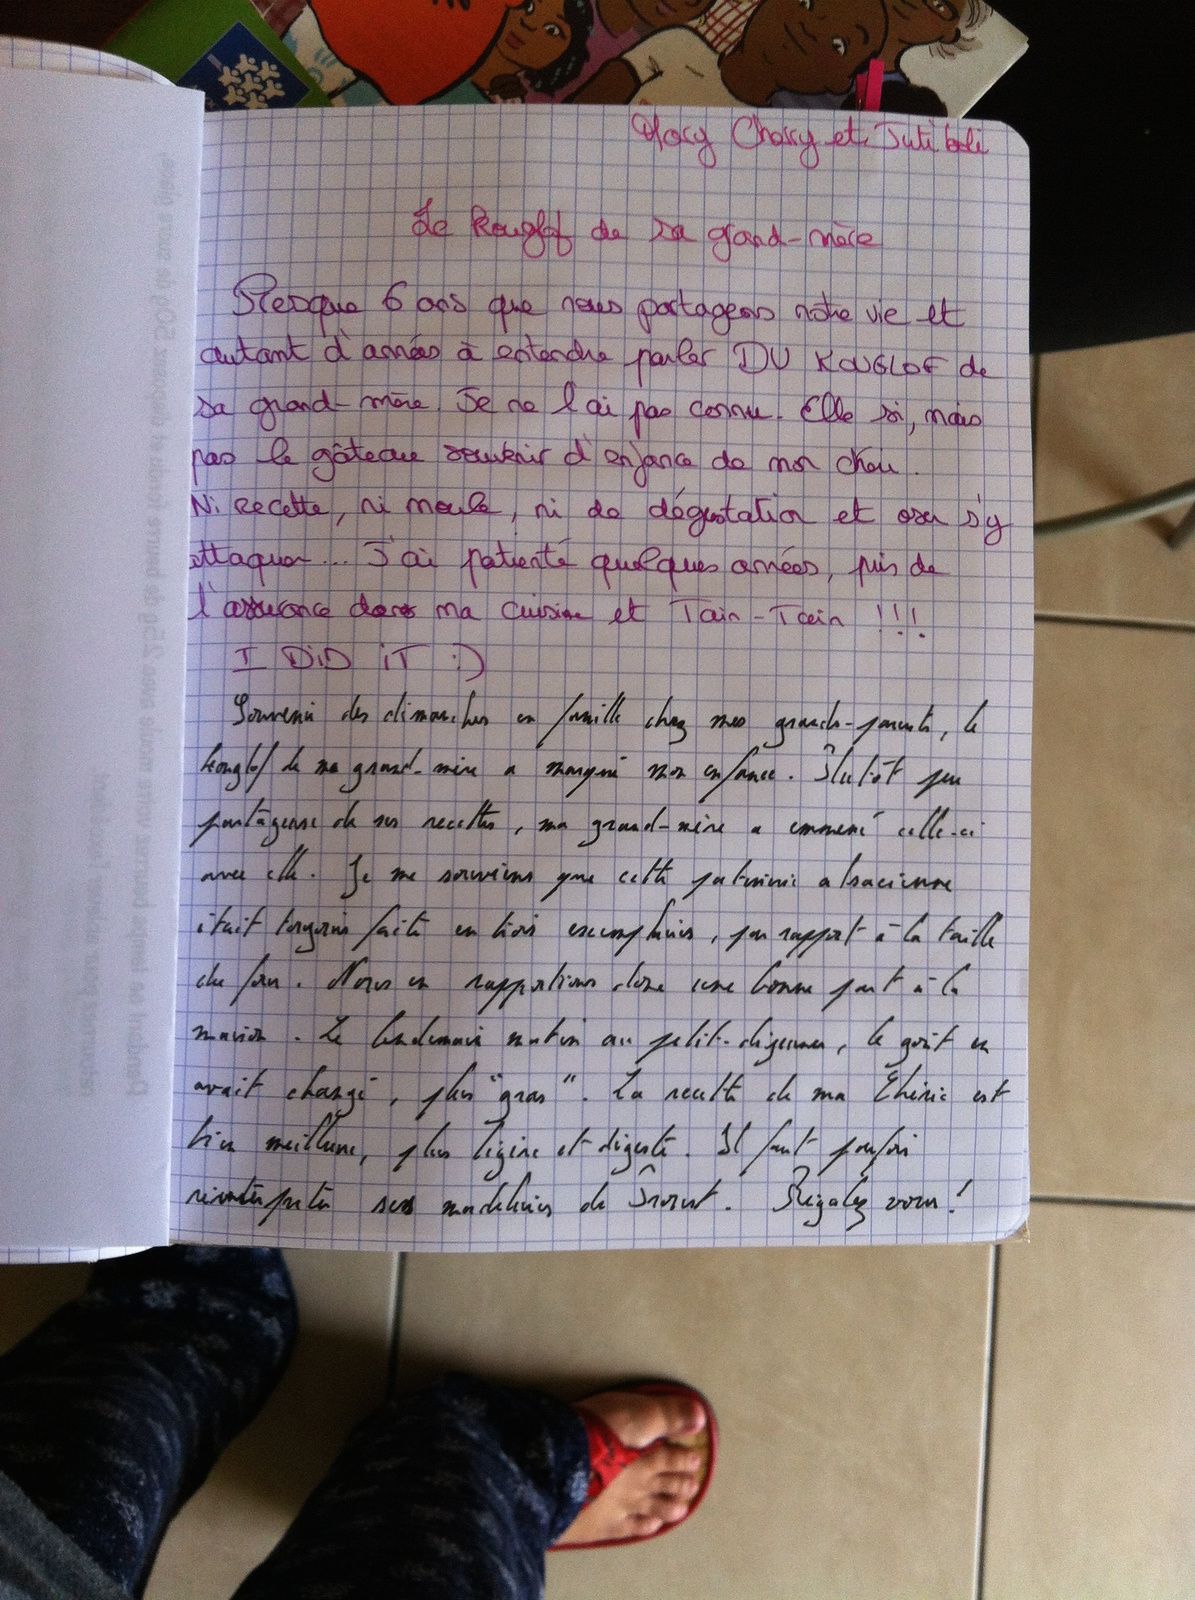 Macy Chassy et Tutiboli
Le Kouglof de sa grand-mère
Presque 6 ans que nous partageons notre vie et
autant d'années à entendre parler DU KOUGLOF de
sa grand-mère. Je ne l'ai pas connu. Elle si, mais
pas le gâteau souvenir d'enfance de mon chou.
Ni recette, ni moule, ni de dégustation et oser s'y
attaquer... J'ai patienté quelques années, pris de
l'assurance dans ma cuisine et Tain-Tain !!!
I DiD iT :)
Souvenir des dimanches en famille chez mes grands-parents, le
kouglof de ma grand-mère a marqué mon enfance. Plutôt peu
partageuse de ses recettes, ma grand-mère a emmené celle-ci
avec elle. Je me souviens que cette patisserie alsacienne
était toujours faite en trois exemplaires, par rapport à la taille
du four. Nous en rapportions donc une bonne part à la
maison. Le lendemain matin au petit-déjeuner, le goût en
avait changé, plus "gras". La recette de ma Chérie est
bien meilleure, plus légère et digeste. Il faut parfois
réinterpréter ses madeleines de Proust. Régalez vous!